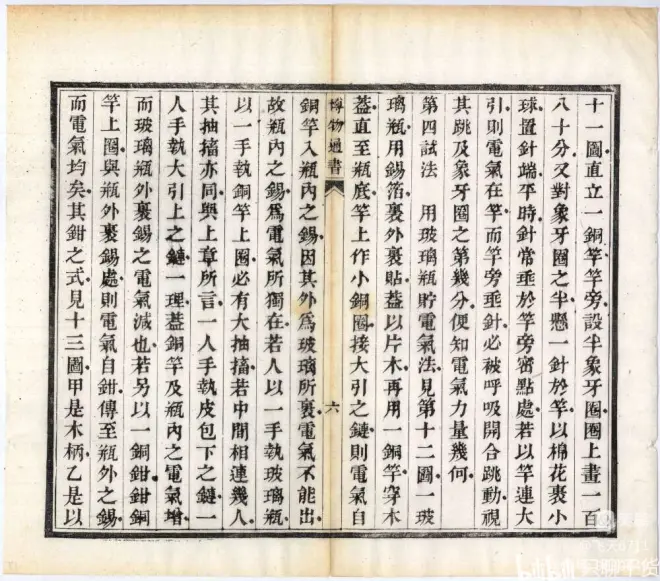 十一圖直立一銅竿竿旁設半象牙圈圈上畫一百
八十分又對象牙圈之半懸一針於竿以棉花裹小
球置針端平時針常垂於竿旁密點處若以竿連大
引則電氣在竿而竿旁垂針必被呼吸開合跳動視
其跳及象牙圈之第幾分便知電氣力量幾何
第四試法　用玻璃瓶貯電氣法見第十二圖一玻
璃瓶用錫箔裏外裹貼蓋以片木再用一銅竿穿木
蓋直至瓶底竿上作小銅圈接大引之鏈則電氣自
博物通書
六
銅竿入瓶內之錫因其外為玻璃所裹電氣不能出
故瓶內之錫為電氣所獨在若人以一手執玻璃瓶
以一手執銅竿上圈必有大抽搐若中間相連幾人
其抽搐亦同與上章所言一人手執皮包下之鏈一
人手執大引上之鏈一理蓋銅竿及瓶內之電氣增
而玻璃瓶外裹錫之電氣減也若另以一銅鉗鉗銅
竿上圈與瓶外裹錫處則電氣自鉗傳至瓶外之錫
而電氣均矣其鉗之式見十三圖甲是木柄乙是以